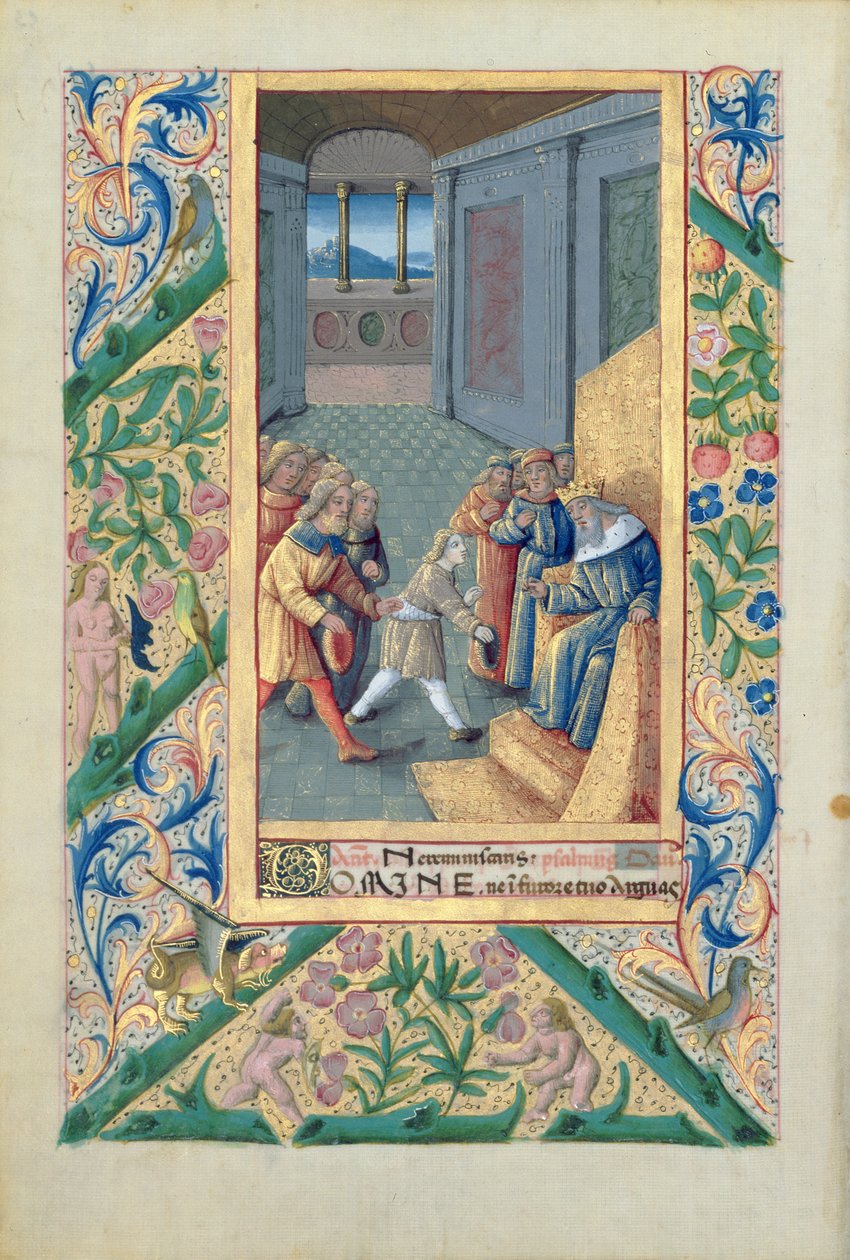 Ant. Ne reminiscaris: psalmus Daui.
DOMINE. ne i furore tuo Arguas